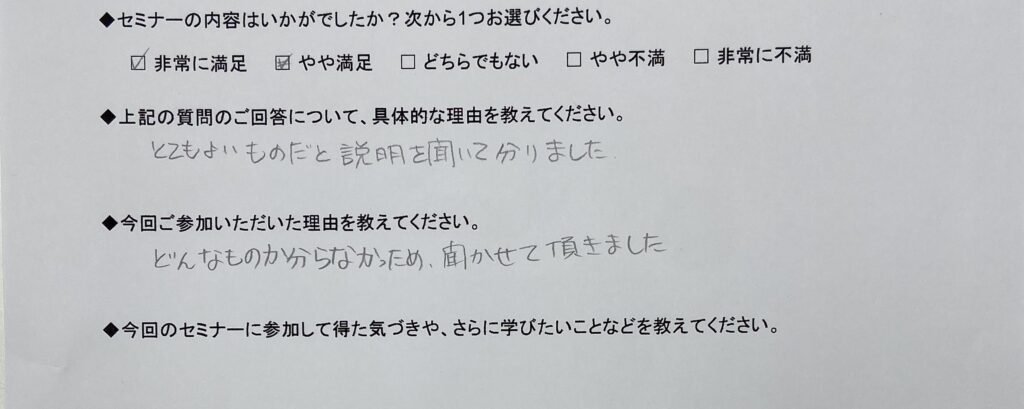 ◆セミナーの内容はいかがでしたか?次から1つお選びください。
☑ 非常に満足 ☑ やや満足 □ どちらでもない □ やや不満 □ 非常に不満
◆上記の質問のご回答について、具体的な理由を教えてください。
とてもよいものだと説明を聞いて分りました
◆今回ご参加いただいた理由を教えてください。
どんなものか分らなかっため、聞かせて頂きました
◆今回のセミナーに参加して得た気づきや、さらに学びたいことなどを教えてください。